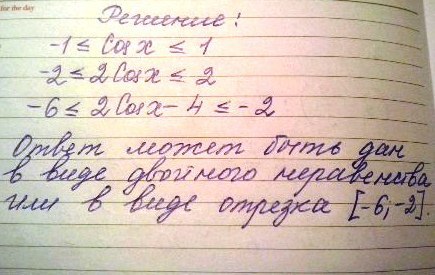 for the day
Решение:
-1 ≤ Cos x ≤ 1
-2 ≤ 2 Cos x ≤ 2
-6 ≤ 2 Cos x - 4 ≤ -2
Ответ может быть дан
в виде двойного неравенства
или в виде отрезка [-6,-2].